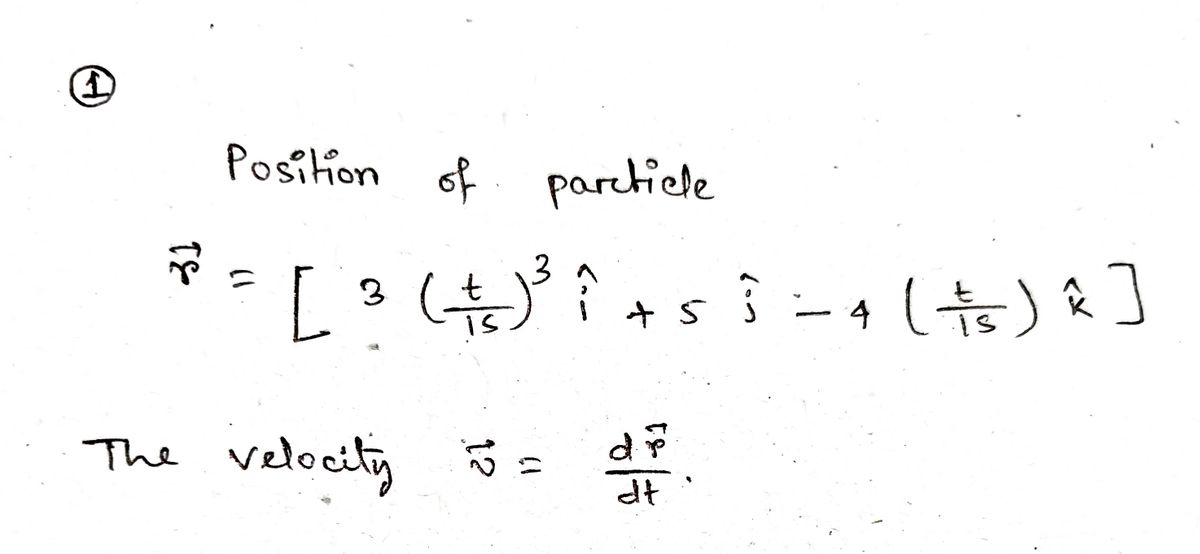 ①
Position of particle
r⃗ = [ 3 (t/1s)³ î + 5 ĵ - 4 (t/1s) k̂ ]
The velocity v⃗ = dr⃗/dt.